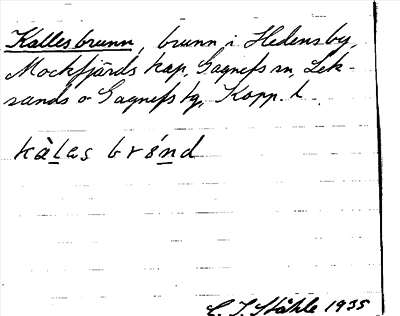 Kallesbrunn, brunn i Hedens by,
Mockfjärds kap, Gagnefs sn, Lek-
sands o Gagnefs tg, Kopp. l.
kàlas brónd
C. I. Ståhle 1935